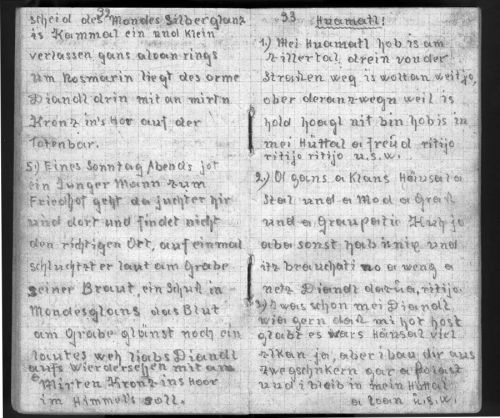 32
scheid des Mondes Silberglanz
is Kammal ein und Klein
verlassen gans aloan rings
um Rosmarin liegt des orme
Diandl drin mit an mirtn
Kronz in's Hoor auf der
Totenbar.
5.) Eines Sonntag Abends jot
ein Junger Mann zum
Friedhof geht da suchter hir
und dort und findet nicht
den richtigen Ort, auf einmal
schluchtzt er laut am Grabe
seiner Braut, ein Schuß in
Mondesglans das Blut
am Grabe glänst noch ein
lautes weh liabs Diandl
aufs Wiedersehen mit am
Mirten Kronz ins Hoor
im Himmels soll.
33 Huamatl!
1.) Mei Huamatl hob is am
Zillertal drein von der
Straßen weg is woltan weit jo,
ober deranzwegn weil is
hold hoagl nit bin hob is in
mei Hüttal a freud ritijo
ritijo ritijo u.s.w.
2.) Ol gans a Klans Häusal a
Stal und a Mod a Graß
und a Graupate Kuh jo
aba sonst hab i nix und
itz brauchat i no a weng a
netz Diandl dazua, ritijo.
3.) I was schon mei Diandl
wia gern daß mi hot host
glabt es wars Häusal viel
zklan jo, aber i bau dir aus
zwegschnkern gar a Polast
und i bleib in mein Hüttal
a loan u.s.w.